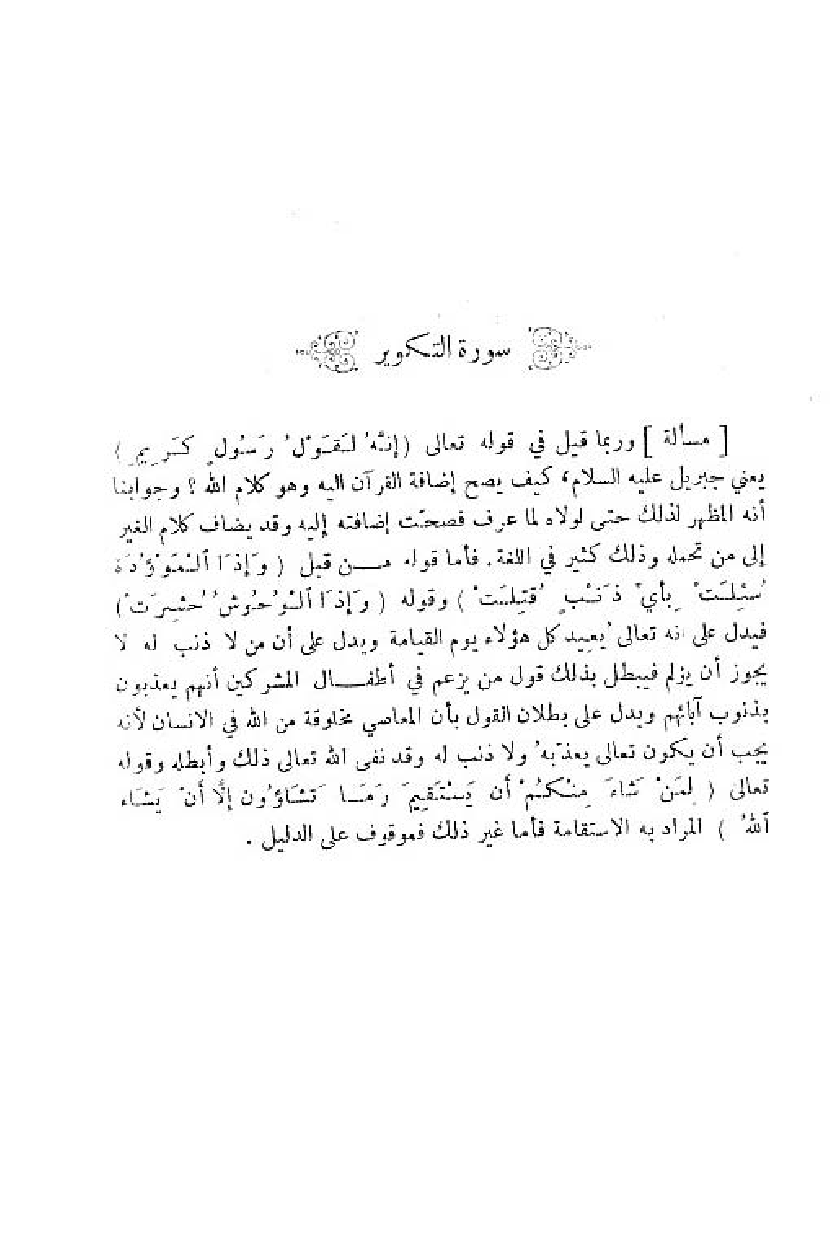 سورة التكوير
[ مسألة ] وربما قيل في قوله تعالى ( إِنَّهُ لَقَوْلُ رَسُولٍ كَرِيمٍ )
يعني جبريل عليه السلام، كيف يصح إضافة القرآن اليه وهو كلام الله ؟ وجوابنا
أنه المظهر لذلك حتى لولاه لما عرف فصحت إضافته إليه وقد يضاف كلام الغير
إلى من تحمله وذلك كثير في اللغة . فأما قوله من قبل ( وَإِذَا ٱلْمَوْؤُدَةُ
سُئِلَتْ بِأَيِّ ذَنْبٍ قُتِلَتْ ) وقوله ( وَإِذَا ٱلْوُحُوشُ حُشِرَتْ )
فيدل على انه تعالى يُعيد كل هؤلاء يوم القيامة ويدل على أن من لا ذنب له لا
يجوز أن يؤلم فيبطل بذلك قول من يزعم في أطفال المشركين أنهم يعذبون
بذنوب آبائهم ويدل على بطلان القول بأن المعاصي مخلوقة من الله في الانسان لأنه
يجب أن يكون تعالى يعذّبه ولا ذنب له وقد نفى الله تعالى ذلك وأبطله وقوله
تعالى ( لِمَنْ شَاءَ مِنْكُمْ أَن يَسْتَقِيمَ وَمَا تَشَاؤُون إِلَّا أَنْ يَشَاء
ٱللهُ ) المراد به الاستقامة فأما غير ذلك فموقوف على الدليل .